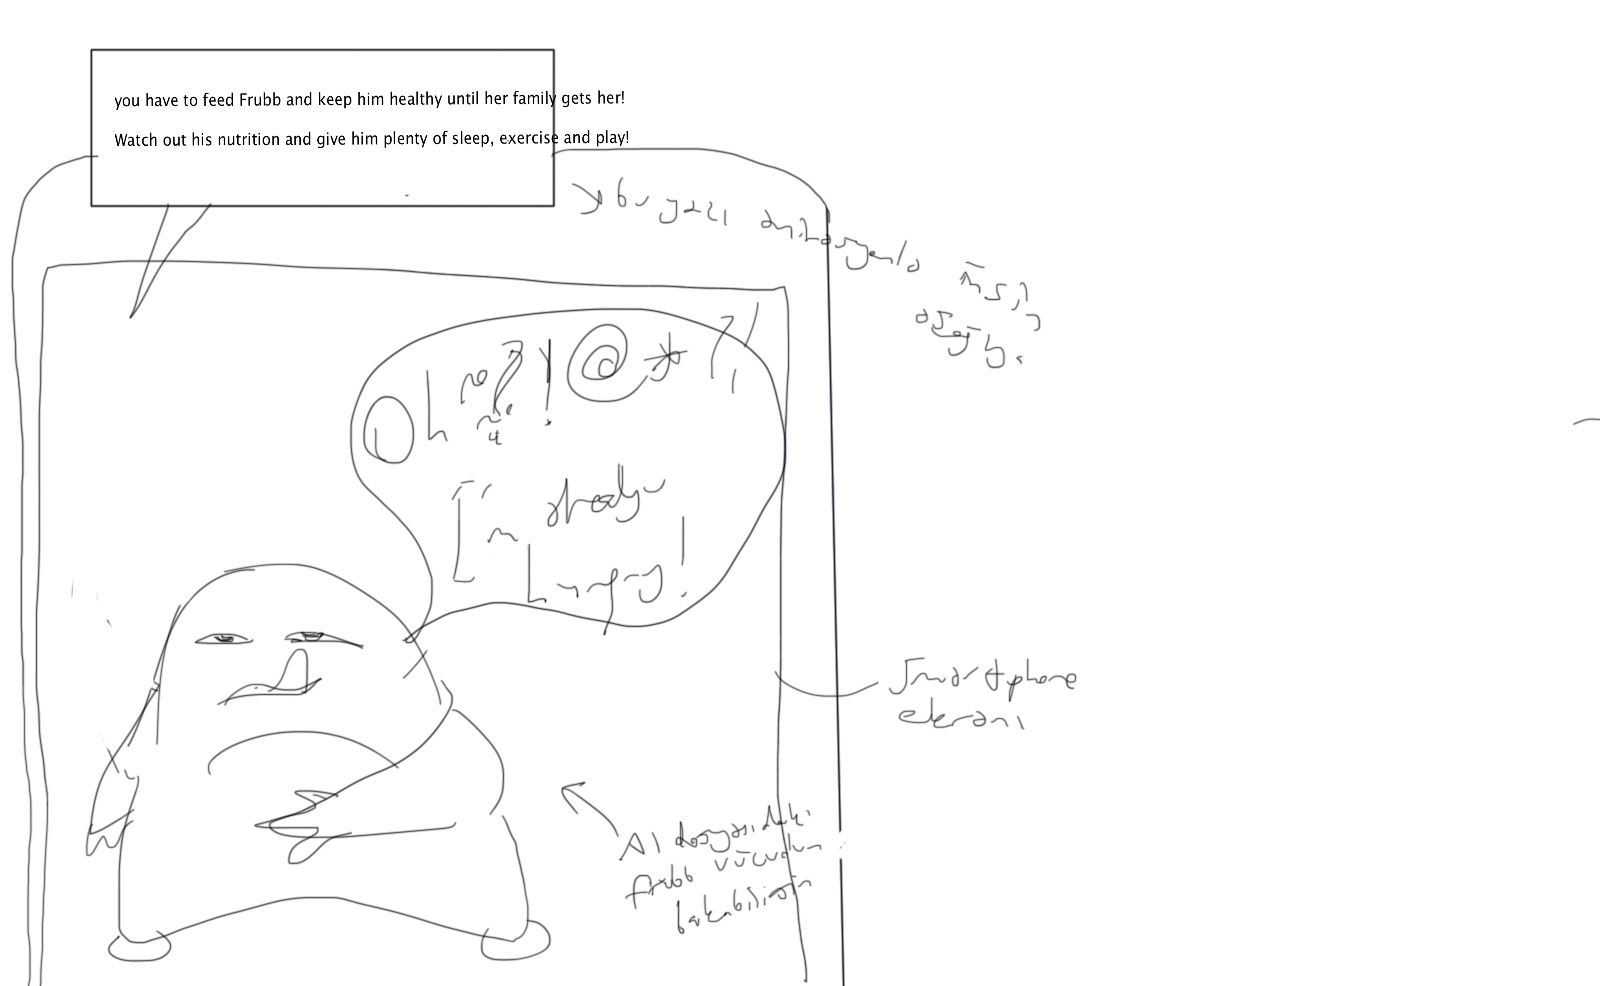 you have to feed Frubb and keep him healthy until her family gets her!
Watch out his nutrition and give him plenty of sleep, exercise and play!
bu yazı
Oh no?!@*?!
I'm already
hungry!
Smartphone
ekranı
AI dosyasındaki
frubb vücudun
bakabilirsin